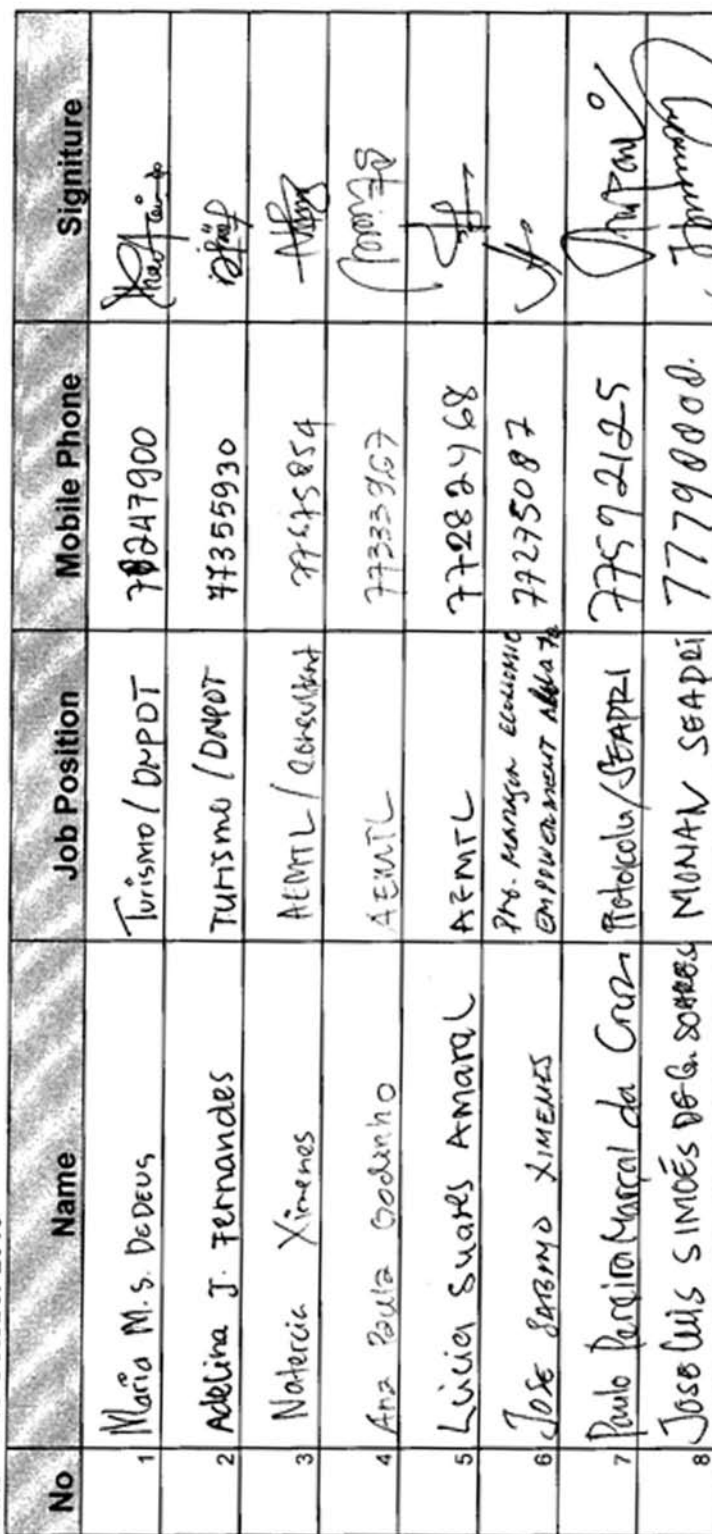 No Name Job Position Mobile Phone Signiture
1 Maria M. S. DEDEUS Turismo / DNPDT 78247900
2 Adelina J. Fernandes Turismo / DNPDT 77355930
3 Natercia Ximenes AEMTL / Consultant 77575854
4 Ana Paula Godinho AEMTL 77333967
5 Lúcia Suares Amaral AEMTL 77282468
6 JOSE XIMENES PRO. MANAGER ECONOMIC 77275087
EMPOWERMENT
7 Paulo Pereira Marcal da Cruz Protocolu/SEAPRI 77592125
8 Jose Luis SIMOÉS DE G. SOARES SEAPRI 77790000.